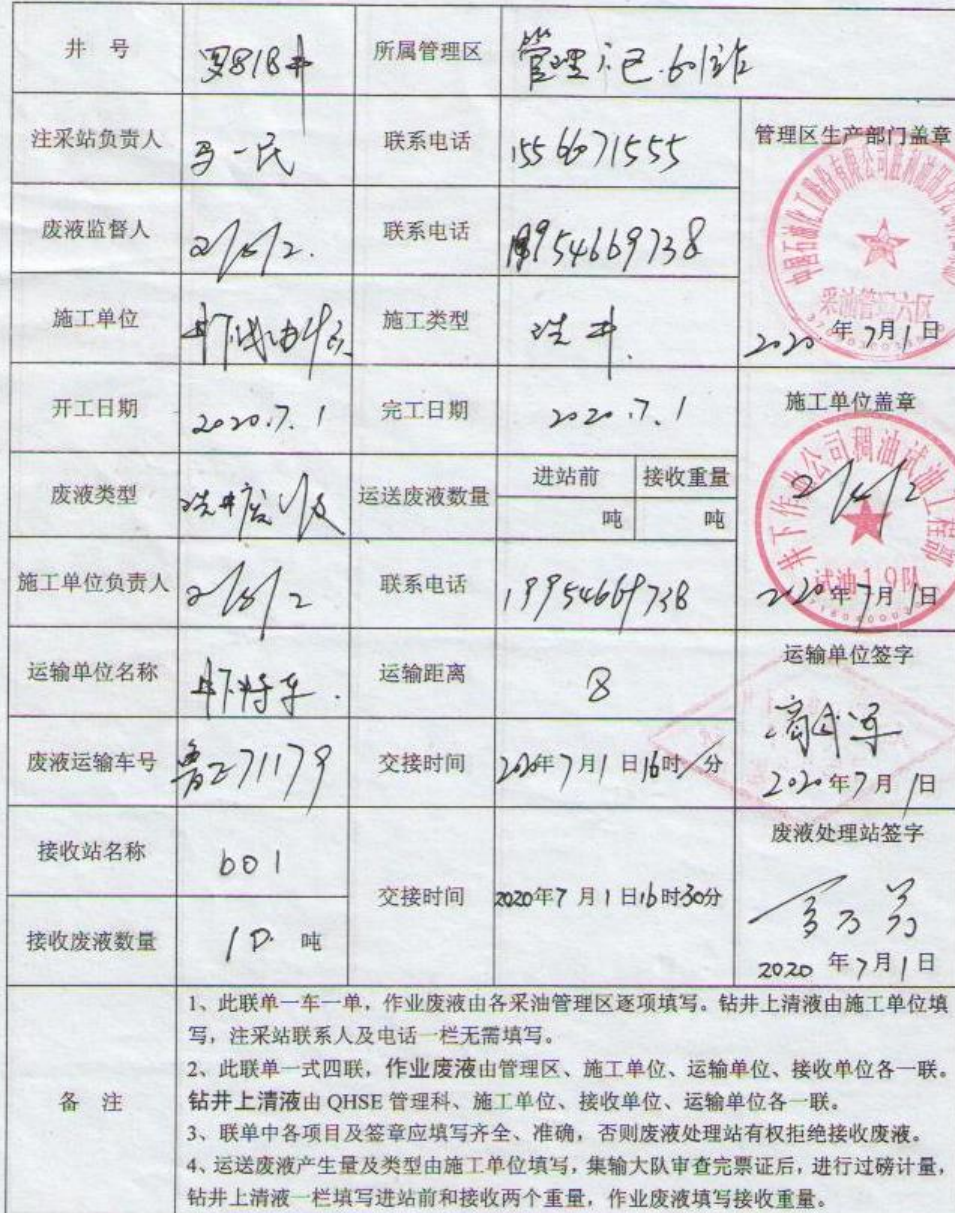 井 号 罗818井 所属管理区
注采站负责人 马一民 联系电话 1556671555 管理区生产部门盖章
废液监督人 联系电话 954669738
采油管理六区
施工单位 施工类型 洗井 2020年7月1日
开工日期 2020.7.1 完工日期 2020.7.1 施工单位盖章
井下作业公司稠油试油工程部
废液类型 洗井废液 运送废液数量 进站前 接收重量
吨 吨
试油19队
施工单位负责人 联系电话 19954669738 2020年7月1日
运输单位名称 井下特车 运输距离 8 运输单位签字
废液运输车号 鲁Z71179 交接时间 2020年7月1日16时 分
2020年7月1日
接收站名称 601 交接时间 2020年7月1日16时30分 废液处理站签字
接收废液数量 10. 吨
2020年7月1日
备 注
1、此联单一车一单，作业废液由各采油管理区逐项填写。钻井上清液由施工单位填
写，注采站联系人及电话一栏无需填写。
2、此联单一式四联，作业废液由管理区、施工单位、运输单位、接收单位各一联。
钻井上清液由 QHSE 管理科、施工单位、接收单位、运输单位各一联。
3、联单中各项目及签章应填写齐全、准确，否则废液处理站有权拒绝接收废液。
4、运送废液产生量及类型由施工单位填写，集输大队审查完票证后，进行过磅计量，
钻井上清液一栏填写进站前和接收两个重量，作业废液填写接收重量。